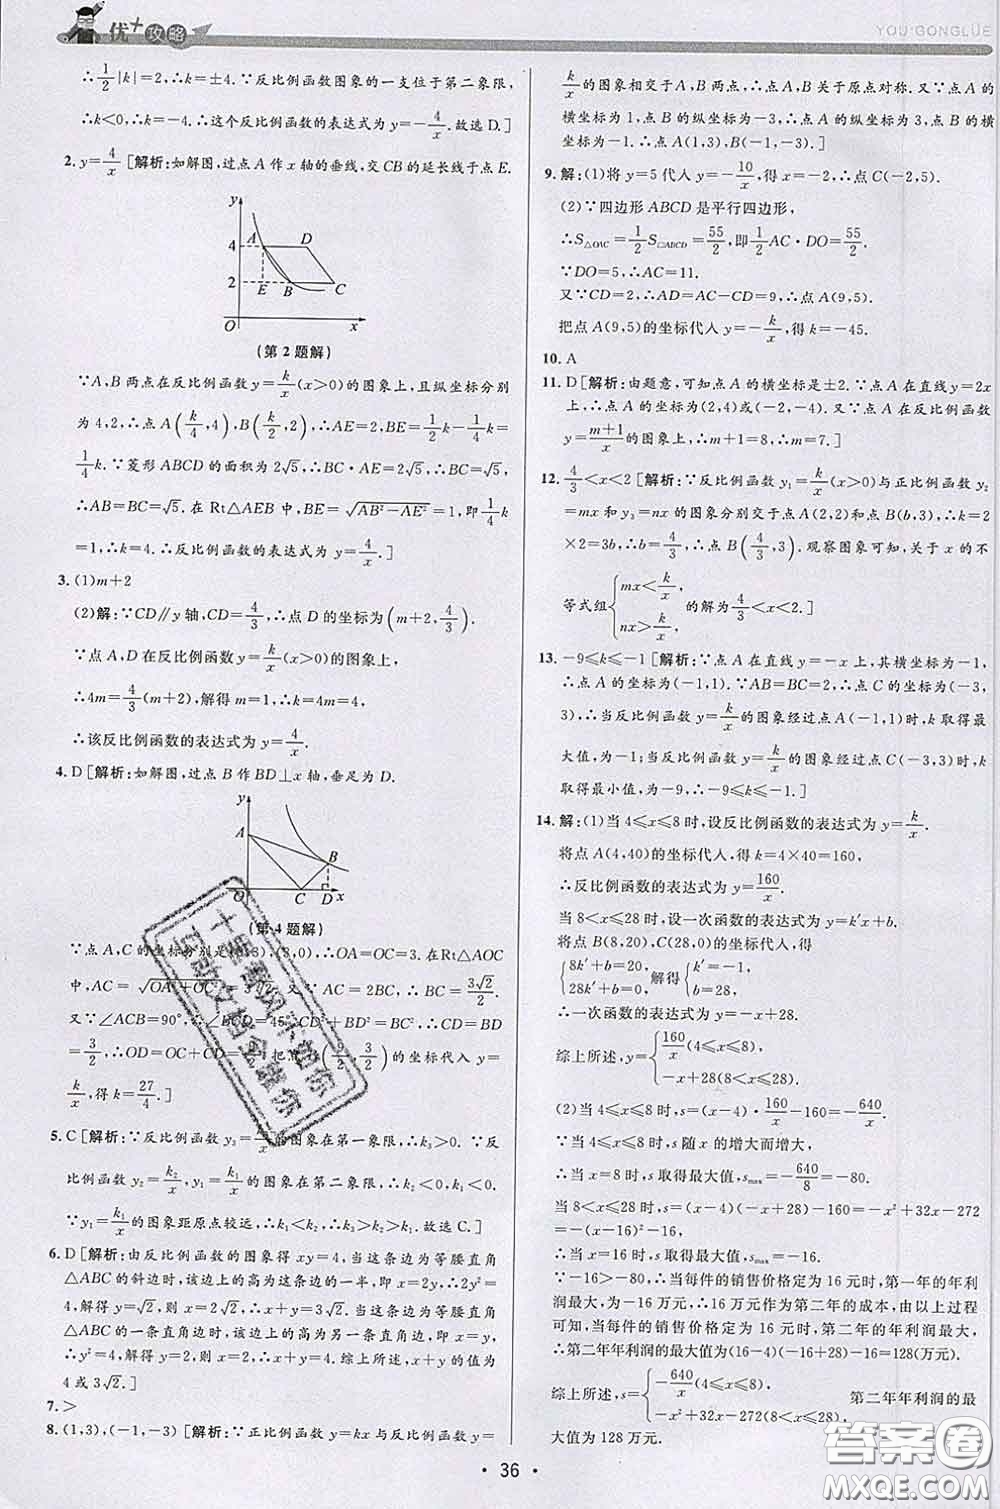 优+攻略
YOU+GONGLÜE
∴1/2|k|=2,∴k=±4.∵反比例函数图象的一支位于第二象限,
∴k<0,∴k=-4.∴这个反比例函数的表达式为y=-4/x.故选D.]
2. y=4/x [解析:如解图,过点A作x轴的垂线,交CB的延长线于点E.
y
A D
4
2
E B C
O x
(第2题解)
∵A,B两点在反比例函数y=k/x(x>0)的图象上,且纵坐标分别
为4,2,∴点A(k/4,4),B(k/2,2),∴AE=2,BE=1/2k-1/4k=
1/4k.∵菱形ABCD的面积为2√5,∴BC·AE=2√5,∴BC=√5,
∴AB=BC=√5.在Rt△AEB中,BE=√(AB²-AE²)=1,即1/4k
=1,∴k=4.∴反比例函数的表达式为y=4/x.]
3. (1)m+2
(2)解:∵CD∥y轴,CD=4/3,∴点D的坐标为(m+2,4/3).
∵点A,D在反比例函数y=k/x(x>0)的图象上,
∴4m=4/3(m+2),解得m=1,∴k=4m=4,
∴该反比例函数的表达式为y=4/x.
4. D[解析:如解图,过点B作BD⊥x轴,垂足为D.
y
A
B
O C D x
(第4题解)
∵点A,C的坐标分别是(0,3),(3,0),∴OA=OC=3.在Rt△AOC
中,AC=√(OA²+OC²)=3√2.又∵AC=2BC,∴BC=3√2/2.
又∵∠ACB=90°,∴∠BCD=45°,∴CD²+BD²=BC²,∴CD=BD=
3/2,∴OD=OC+CD=9/2,把点B(9/2,3/2)的坐标代入y=
k/x,得k=27/4.]
5. C[解析:∵反比例函数y₃=k₃/x的图象在第一象限,∴k₃>0.∵反
比例函数y₂=k₂/x,y₁=k₁/x的图象在第二象限,∴k₂<0,k₁<0.
∵y₁=k₁/x的图象距原点较远,∴k₁<k₂,∴k₃>k₂>k₁.故选C.]
6. D[解析:由反比例函数的图象得xy=4.当这条边为等腰直角
△ABC的斜边时,该边上的高为这条边的一半,即x=2y,∴2y²
=4,解得y=√2,则x=2√2,∴x+y=3√2.当这条边为等腰直角
△ABC的一条直角边时,该边上的高为另一条直角边,即x=y,
∴y²=4,解得y=2,则x=2,∴x+y=4.综上所述,x+y的值为
4或3√2.]
7. >
8. (1,3),(-1,-3)[解析:∵正比例函数y=kx与反比例函数y=
k/x的图象相交于A,B两点,∴点A与点B关于原点对称.又∵点A的
横坐标为1,点B的纵坐标为-3,∴点A的纵坐标为3,点B的横坐
标为-1.∴A(1,3),B(-1,-3).]
9. 解:(1)将y=5代入y=-10/x,得x=-2,∴点C(-2,5).
(2)∵四边形ABCD是平行四边形,
∴S△OAC=1/2S▱ABCD=55/2,即1/2AC·DO=55/2.
∵DO=5,∴AC=11.
又∵CD=2,∴AD=AC-CD=9,∴点A(9,5).
把点A(9,5)的坐标代入y=-k/x,得k=-45.
10. A
11. D[解析:由题意,可知点A的横坐标是±2.∵点A在直线y=2x
上,∴点A的坐标为(2,4)或(-2,-4).又∵点A在反比例函数
y=(m+1)/x的图象上,∴m+1=8,∴m=7.]
12. 4/3<x<2[解析:∵反比例函数y₁=k/x(x>0)与正比例函数y₂
=mx和y₃=nx的图象分别交于点A(2,2)和点B(b,3),∴k=2
×2=3b,∴b=4/3,∴点B(4/3,3).观察图象可知,关于x的不
等式组{mx<k/x, nx>k/x的解为4/3<x<2.]
13. -9≤k≤-1[解析:∵点A在直线y=-x上,其横坐标为-1,
∴点A的坐标为(-1,1).∵AB=BC=2,∴点C的坐标为(-3,
3),∴当反比例函数y=k/x的图象经过点A(-1,1)时,k取得最
大值,为-1;当反比例函数y=k/x的图象经过点C(-3,3)时,k
取得最小值,为-9,∴-9≤k≤-1.]
14. 解:(1)当4≤x≤8时,设反比例函数的表达式为y=k/x.
将点A(4,40)的坐标代入,得k=4×40=160,
∴反比例函数的表达式为y=160/x.
当8<x≤28时,设一次函数的表达式为y=k′x+b,
将点B(8,20),C(28,0)的坐标代入,得
{8k′+b=20, 28k′+b=0,解得{k′=-1, b=28.
∴一次函数的表达式为y=-x+28.
综上所述,y={160/x(4≤x≤8), -x+28(8<x≤28).
(2)当4≤x≤8时,s=(x-4)·160/x-160=-640/x.
∵当4≤x≤8时,s随x的增大而增大,
∴当x=8时,s取得最大值,smax=-640/8=-80.
当8<x≤28时,s=(x-4)(-x+28)-160=-x²+32x-272
=-(x-16)²-16,
∴当x=16时,s取得最大值,smax=-16.
∵-16>-80,∴当每件的销售价格定为16元时,第一年的年利
润最大,为-16万元,∴16万元作为第二年的成本,由以上过程
可知,当每件的销售价格定为16元时,第二年的年利润最大,
∴第二年年利润的最大值为(16-4)(-16+28)-16=128(万元).
综上所述,s={-640/x(4≤x≤8), -x²+32x-272(8<x≤28). 第二年年利润的最
大值为128万元.
十里春风不如你
互助文档全靠你
答案圈
MXQE.COM
· 36 ·